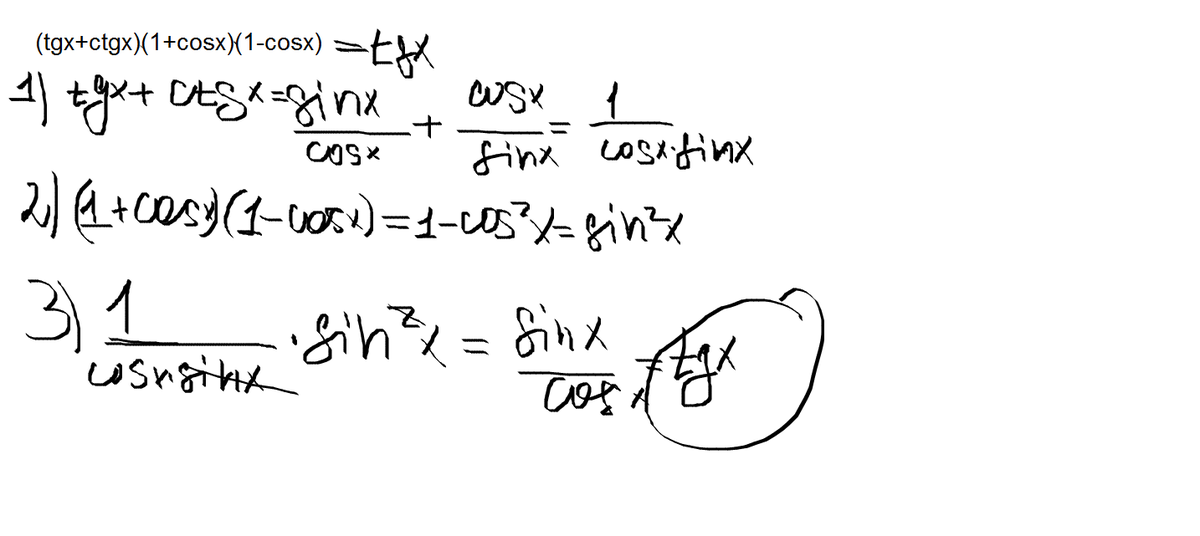 (tgx+ctgx)(1+cosx)(1-cosx) =tgx
1) tgx+ ctgx=sinx/cosx + cosx/sinx = 1/cosx·sinx
2) (1+cosx)(1-cosx)=1-cos²x=sin²x
3) 1/cosxsinx ·sin²x = sinx/cosx =tgx